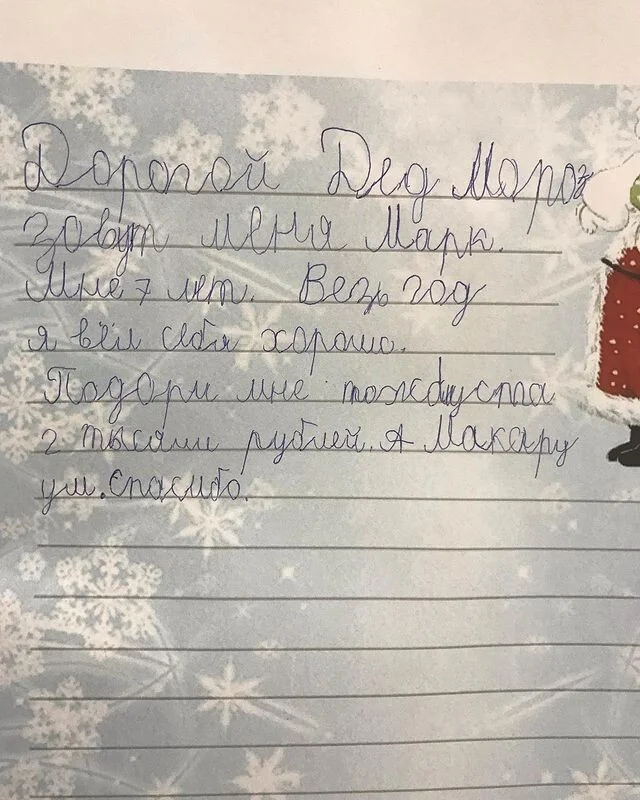 Дорогой Дед Мороз
зовут меня Марк.
Мне 7 лет. Везь год
я вёл себя хорошо.
Подори мне пожбуста
2 тысячи рублей. А Макару
ум. Спасибо.